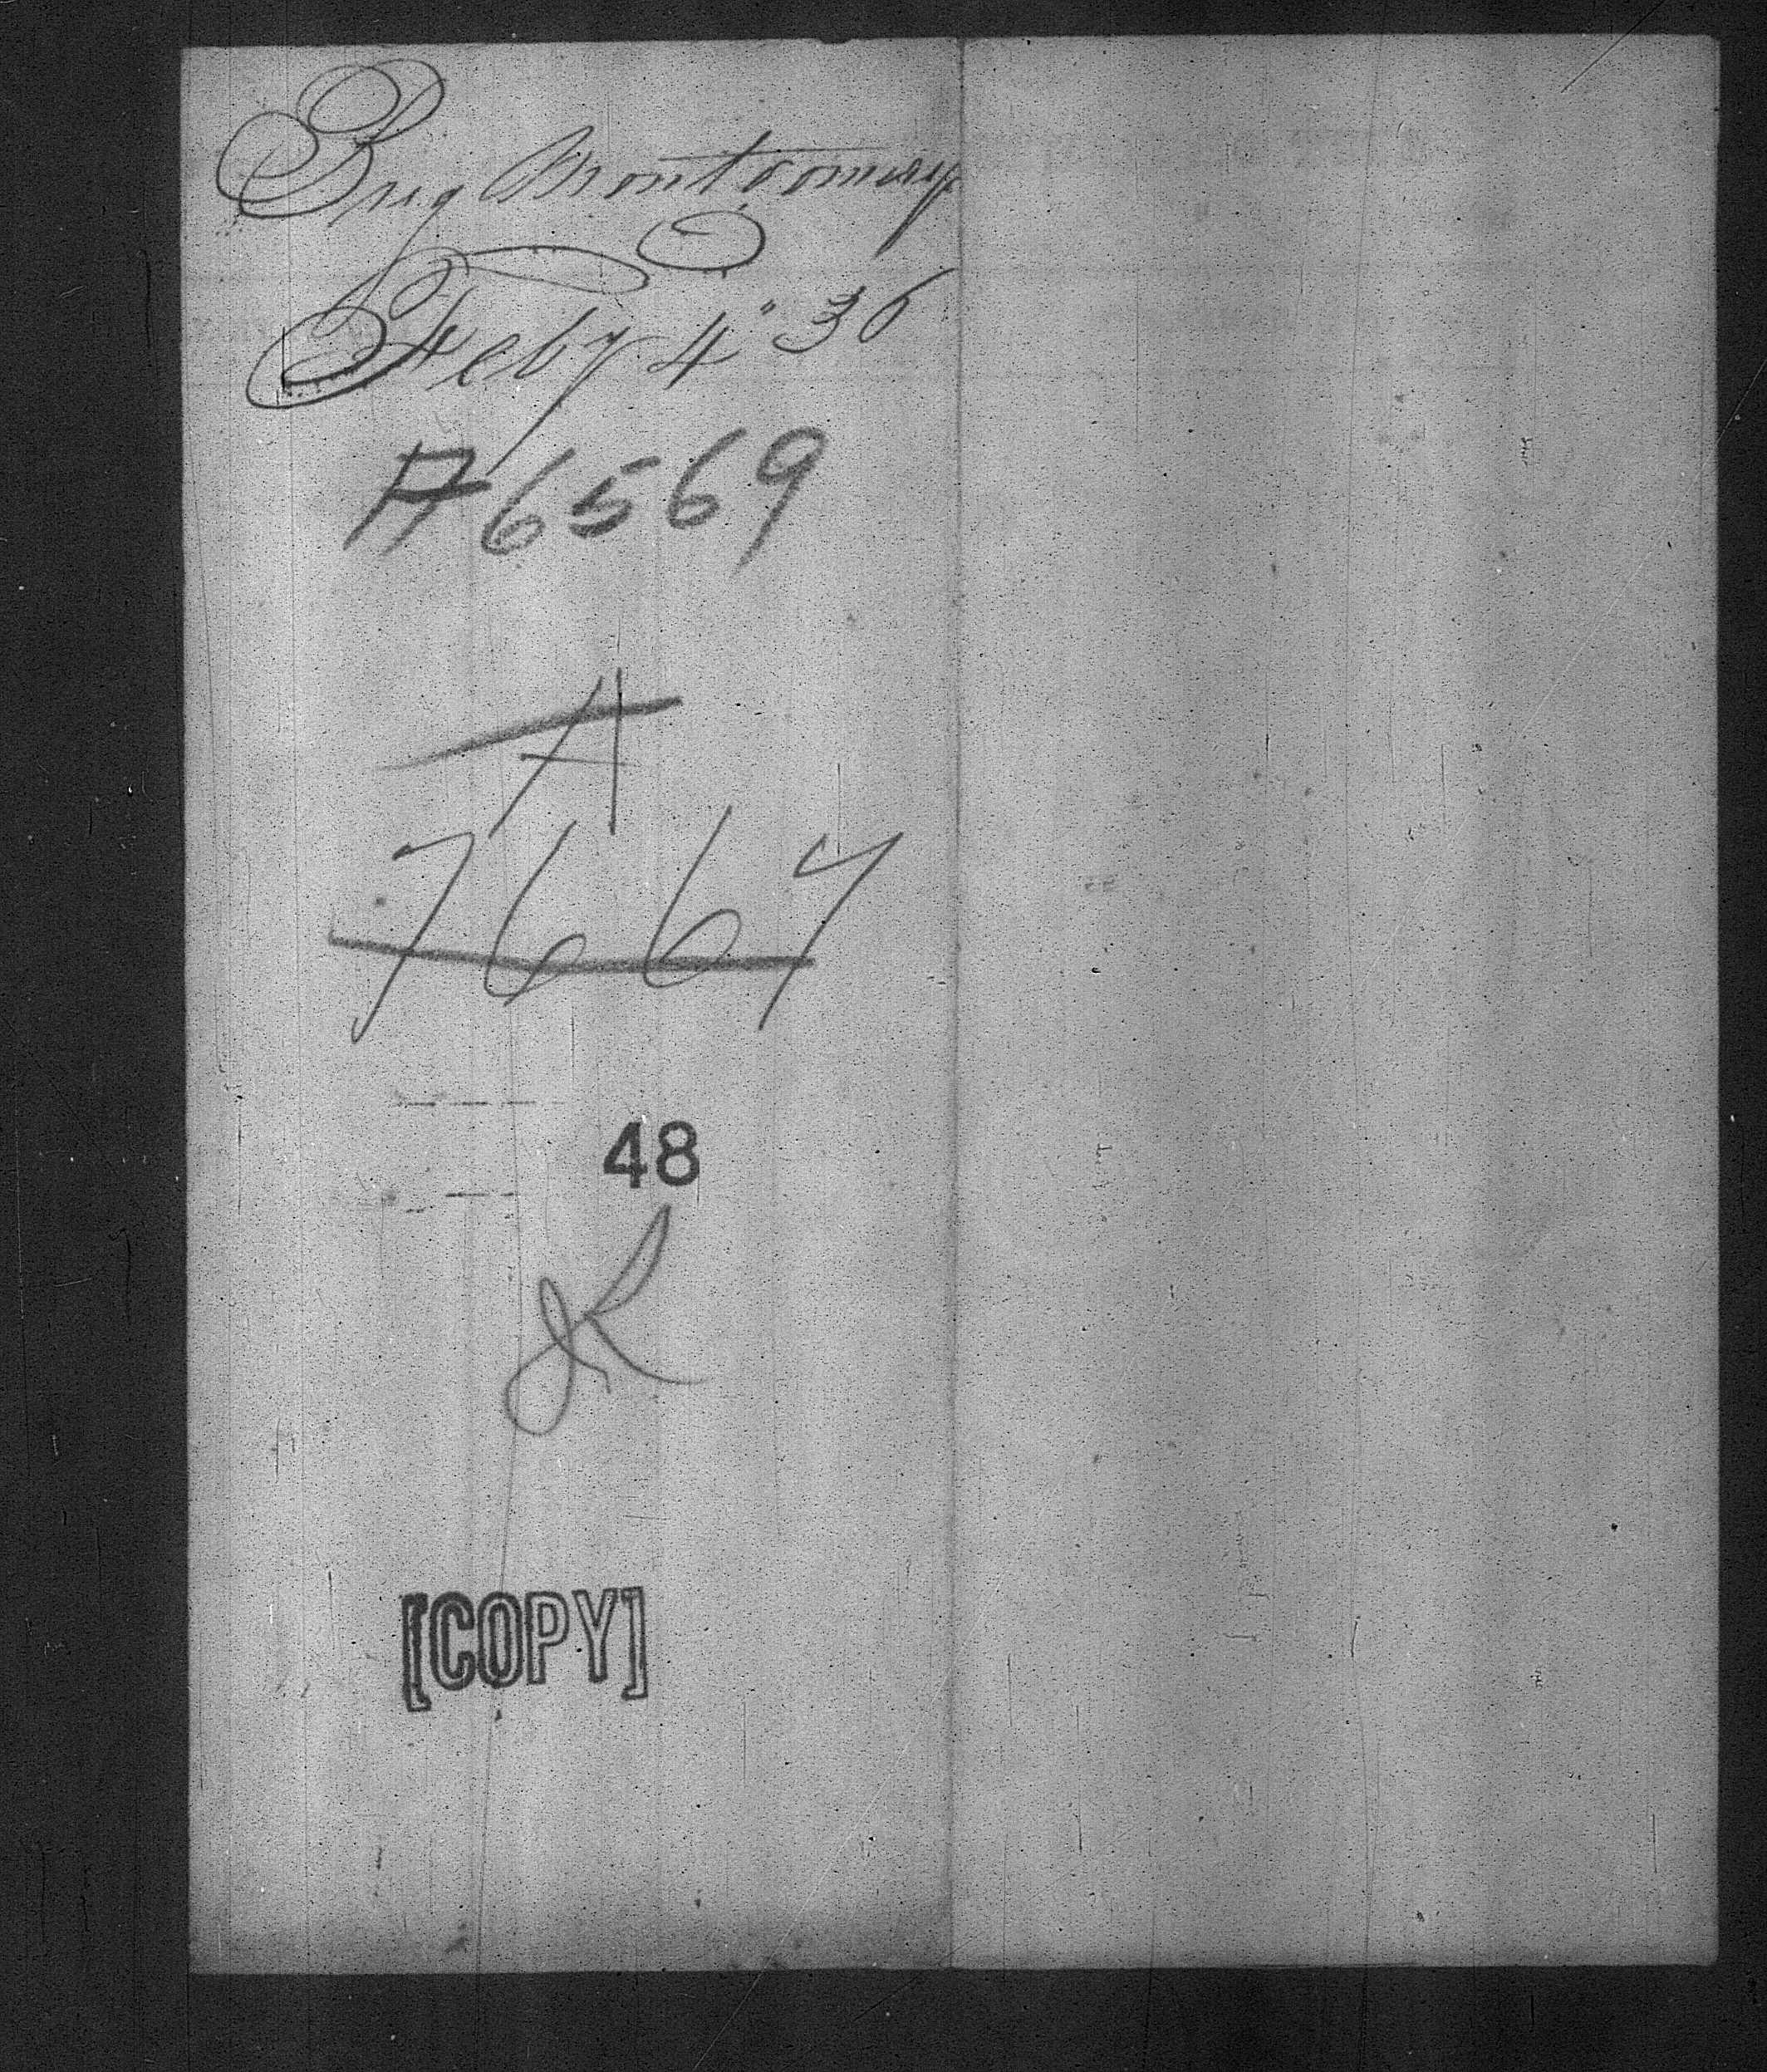 Brig Montgomery
Feby 4" 36
A 6569
A
7667
48
[COPY]